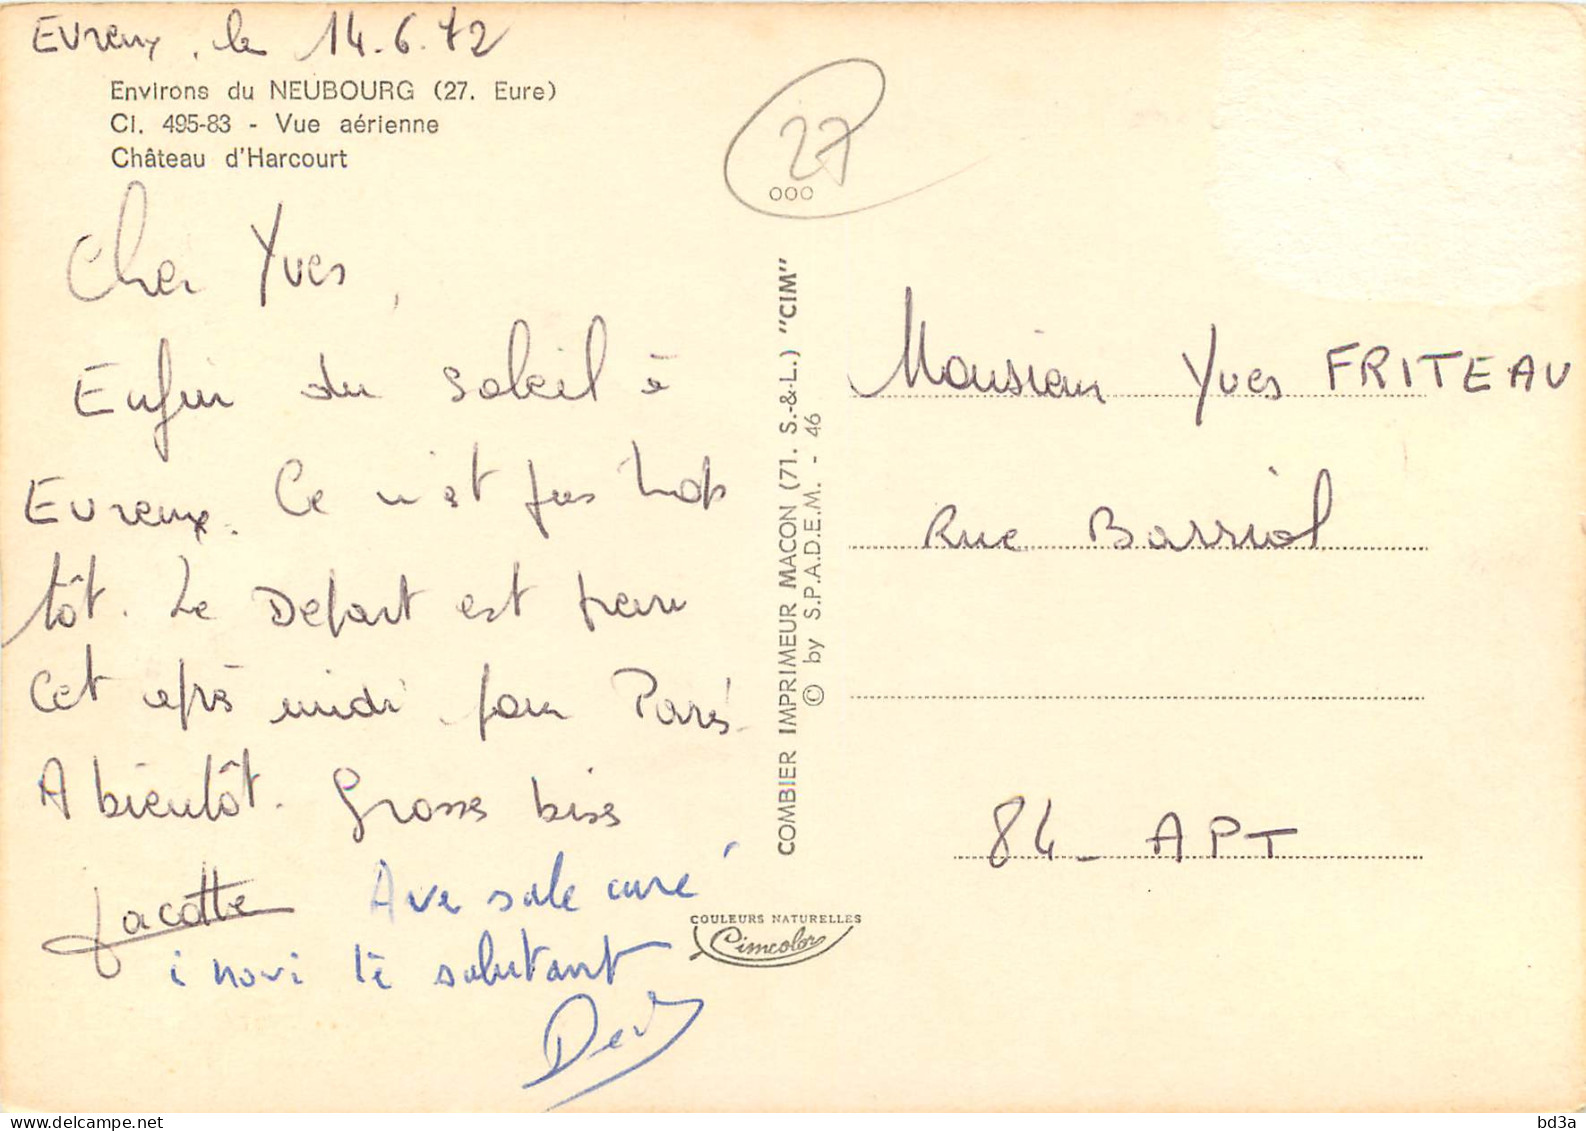 Evreux, le 14.6.72
Environs du NEUBOURG (27. Eure)
Cl. 495-83 - Vue aérienne
Château d'Harcourt
27
000
Cher Yves,
Enfin du soleil à
Evreux. Ce n'est pas trop
tôt. Le Départ est prévu
cet après midi pour Paris.
A bientôt. Grosses bises
Jacotte
Ave sale curé
i novi te salutant
COMBIER IMPRIMEUR MACON (71. S.-&-L.) "CIM"
© by S.P.A.D.E.M. - 46
COULEURS NATURELLES
Cimcolor
Monsieur Yves FRITEAU
Rue Barriol
84 - APT
delcampe.net
bd3a